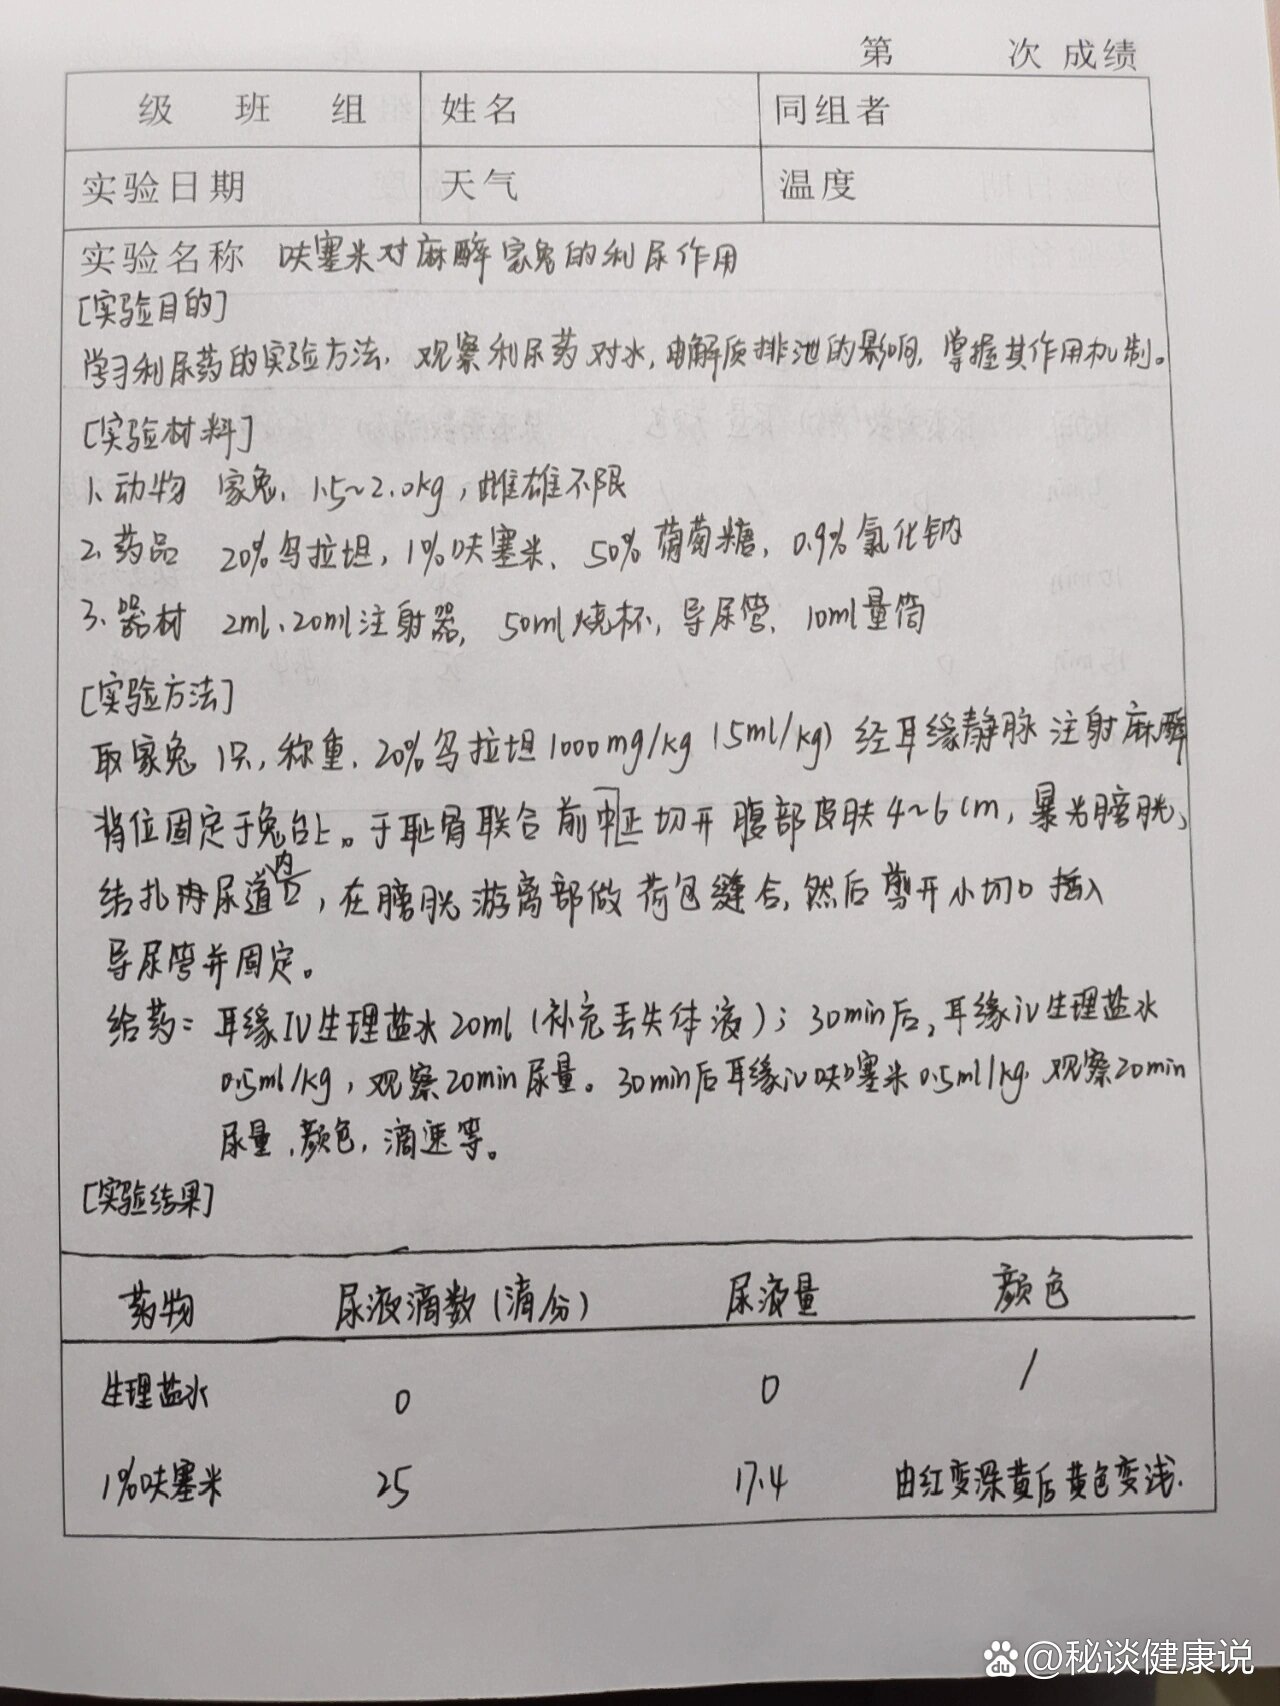 第 次 成绩
级 班 组 姓名 同组者
实验日期 天气 温度
实验名称 呋塞米对麻醉家兔的利尿作用
[实验目的]
学习利尿药的实验方法，观察利尿药对水，电解质排泄的影响，掌握其作用机制。
[实验材料]
1、动物 家兔，1.5~2.0kg，雌雄不限
2、药品 20%乌拉坦，1%呋塞米、50%葡萄糖，0.9%氯化钠
3、器材 2ml、20ml注射器，50ml烧杯，导尿管，10ml量筒
[实验方法]
取家兔1只，称重，20%乌拉坦1000mg/kg（5ml/kg）经耳缘静脉注射麻醉
背位固定于兔台上。于耻骨联合前正中切开腹部皮肤4~6cm，暴光膀胱，
结扎尿道内口，在膀胱游离部做荷包缝合，然后剪开小切口插入
导尿管并固定。
给药：耳缘IV生理盐水20ml（补充丢失体液）；30min后，耳缘iv生理盐水
0.5ml/kg，观察20min尿量。30min后耳缘iv呋塞米0.5ml/kg，观察20min
尿量，颜色，滴速等。
[实验结果]
药物 尿液滴数（滴/分） 尿液量 颜色
生理盐水 0 0 /
1%呋塞米 25 17.4 由红变深黄后黄色变浅.
@秘谈健康说